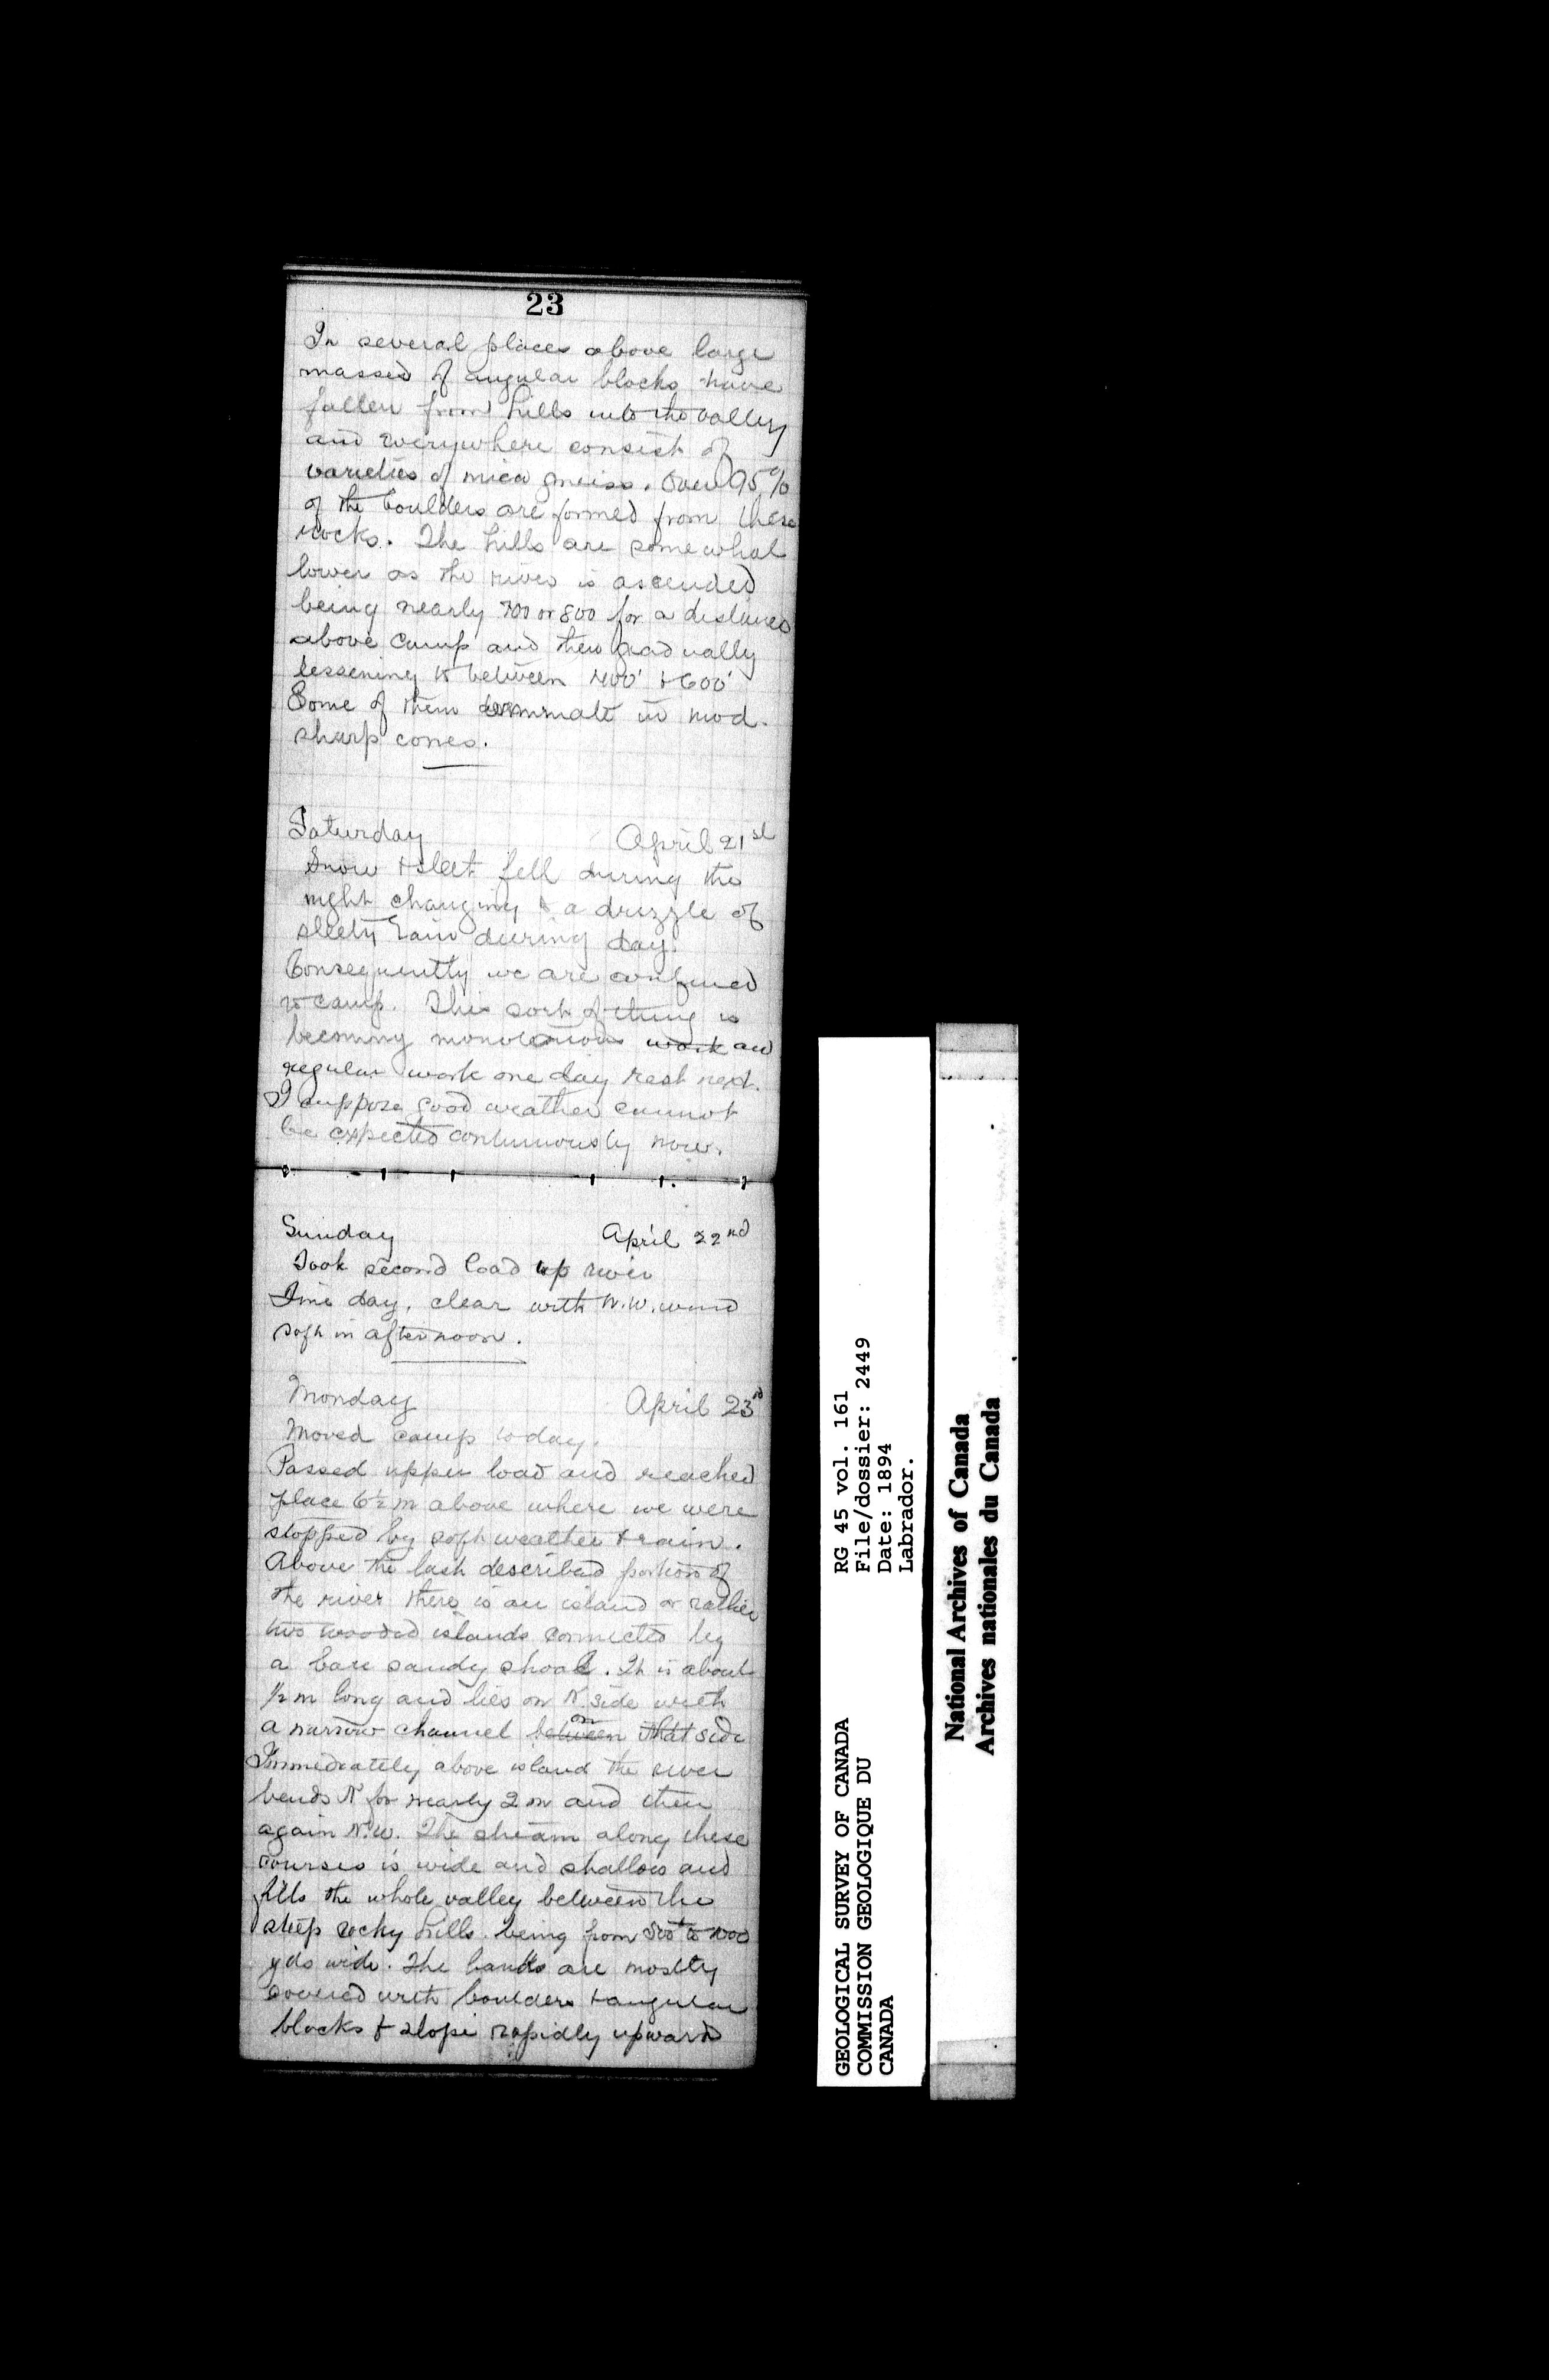 23
In several places above large
masses of angular blocks have
fallen from hills into the valley
and everywhere consist of
varieties of mica gneiss. Over 95%
of the boulders are formed from these
rocks. The hills are somewhat
lower as the river is ascended
being nearly 700 or 800 for a distance
above camp and then gradually
lessening to between 400' + 600'
Some of them terminate in mod.
sharp cones.
Saturday April 21st
Snow + sleet fell during the
night changing to a drizzle of
sleety rain during day.
Consequently we are confined
to camp. This sort of thing is
becoming monotonous work and
regular work one day rest next.
I suppose good weather cannot
be expected continuously now.
Sunday April 22nd
Took second load up river
Fine day, clear with N.W. wind
soft in afternoon.
Monday April 23rd
Moved camp today.
Passed upper load and reached
place 6½ m above where we were
stopped by soft weather + rain.
Above the last described portion of
the river there is an island or rather
two wooded islands connected by
a bare sandy shoal. It is about
½ m long and lies on N. side with
a narrow channel between on that side
Immediately above island the river
bends N for nearly 2 m and then
again N.W. The stream along these
courses is wide and shallow and
fills the whole valley between the
steep rocky hills being from 500 to 1000
yds wide. The banks are mostly
covered with boulders + angular
blocks + slope rapidly upward
GEOLOGICAL SURVEY OF CANADA
COMMISSION GEOLOGIQUE DU
CANADA
RG 45 vol. 161
File/dossier: 2449
Date: 1894
Labrador.
National Archives of Canada
Archives nationales du Canada